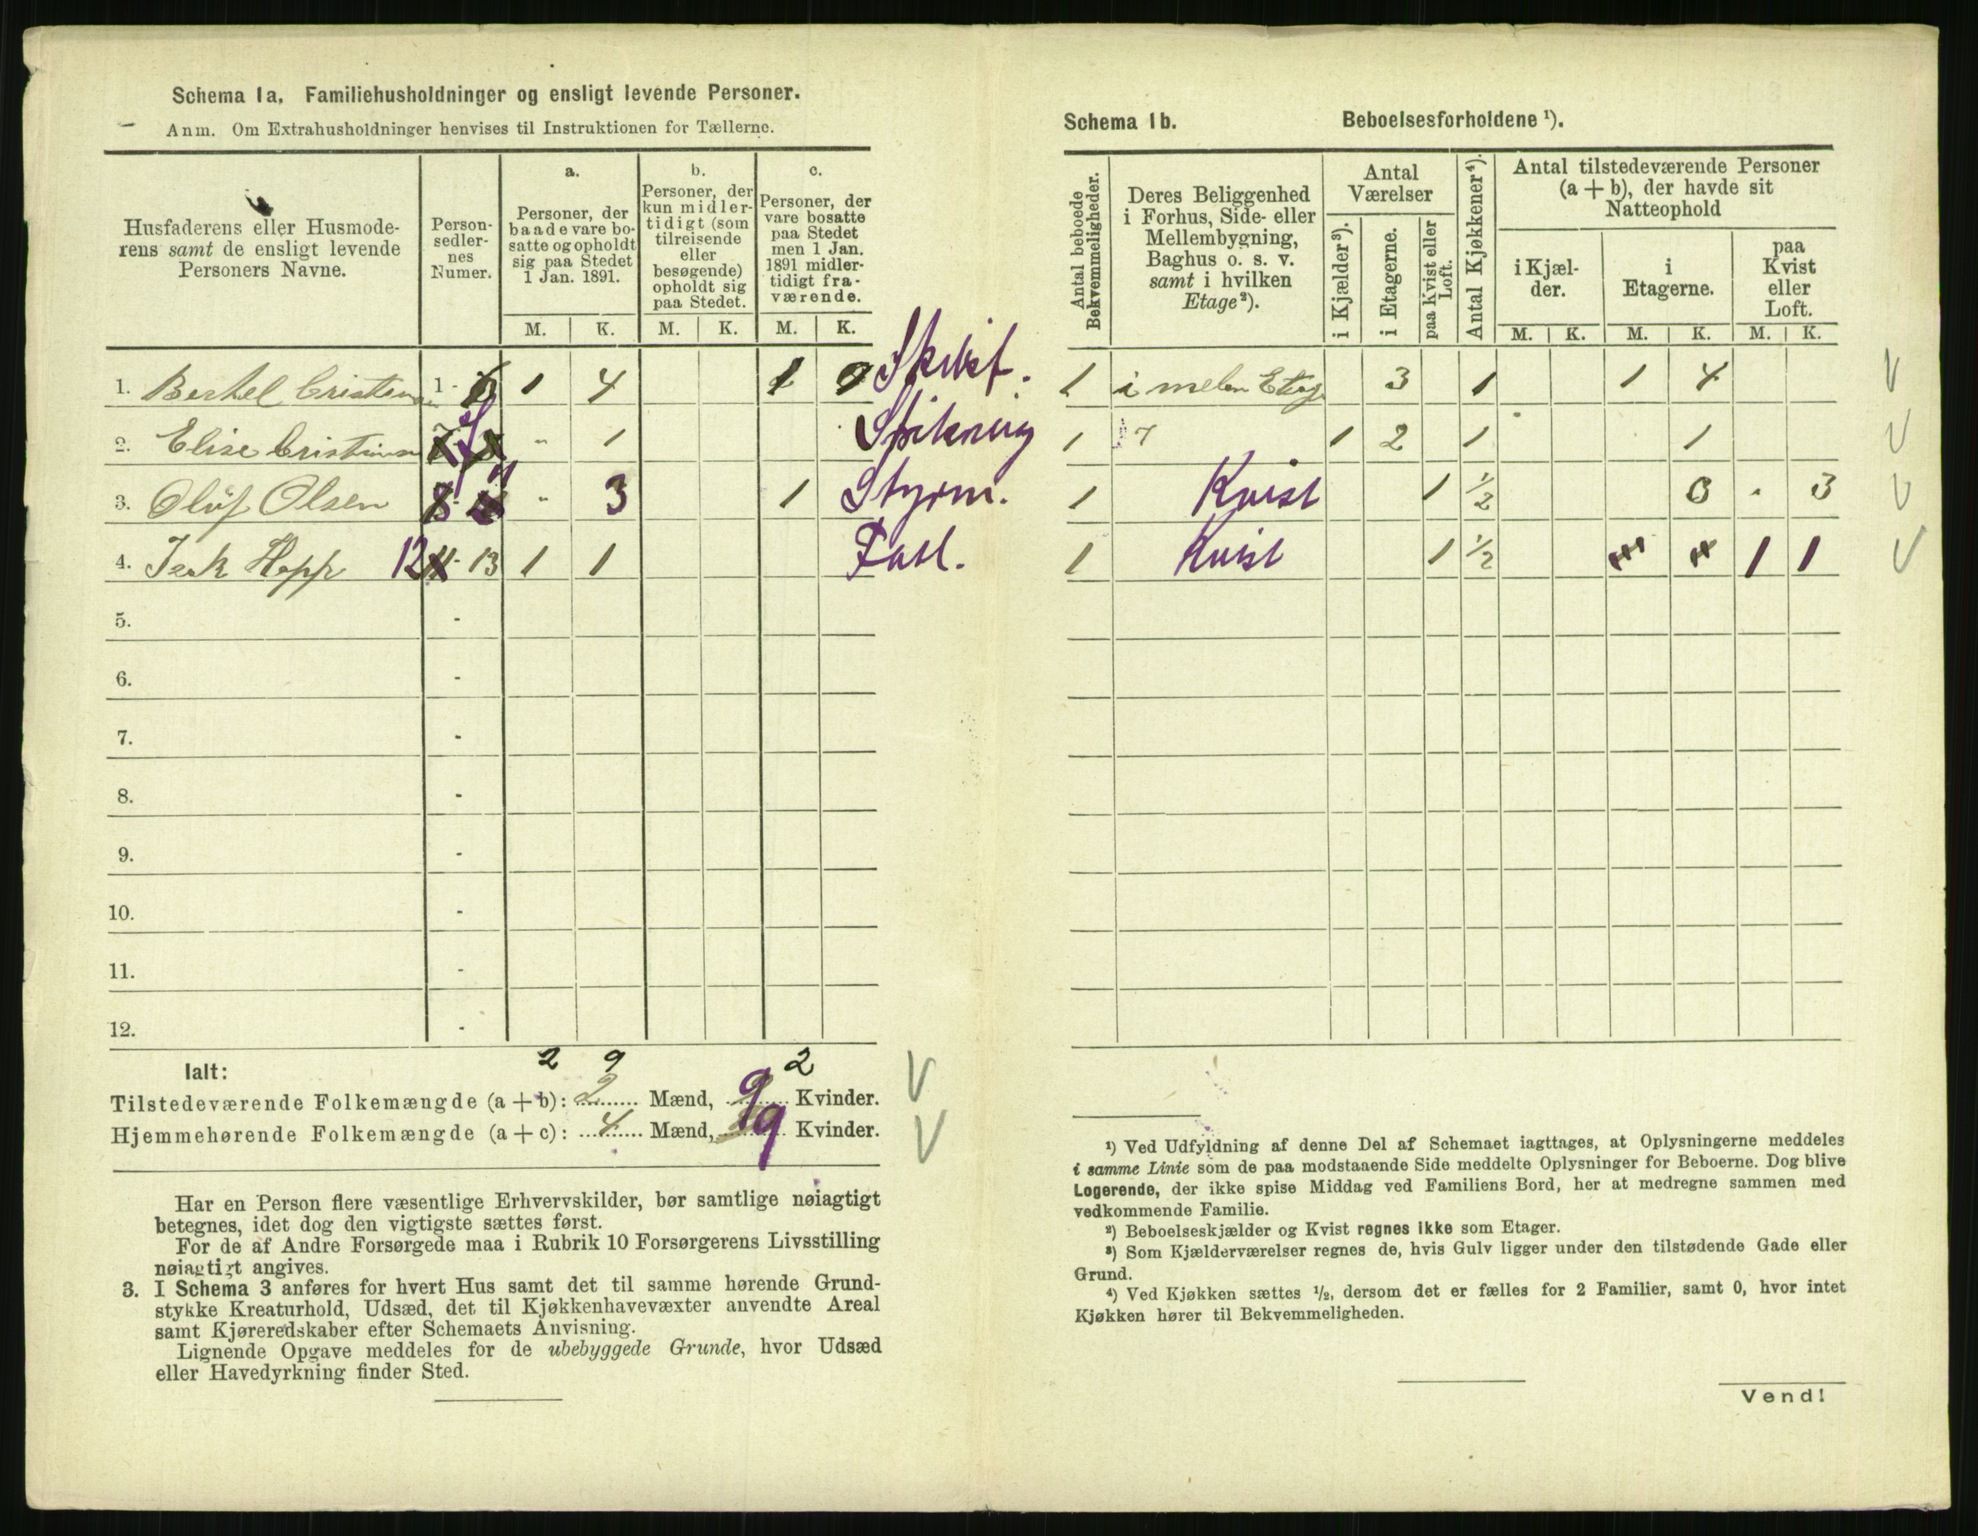 Schema 1a. Familiehusholdninger og ensligt levende Personer.
Anm. Om Extrahusholdninger henvises til Instruktionen for Tællerne.
Husfaderens eller Husmode-
rens samt de ensligt levende
Personers Navne.
Person-
sedler-
nes
Numer.
a.
Personer, der
baade vare bo-
satte og opholdt
sig paa Stedet
1 Jan. 1891.
b.
Personer, der
kun midler-
tidigt (som
tilreisende
eller
besøgende)
opholdt sig
paa Stedet.
c.
Personer, der
vare bosatte
paa Stedet
men 1 Jan.
1891 midler-
tidigt fra-
værende.
M. K. M. K. M. K.
1. Berhel Cristen 1 - 6 1 4 1 Skibsf.
2. Elise Cristensen 7 " 1
3. Olof Olsen 8 - 11 " 3 1 Styrm.
4. Isak Hopp 12 - 13 1 1 Fatt.
5. -
6. -
7. -
8. -
9. -
10. -
11. -
12. -
2 9 2
Ialt:
Tilstedeværende Folkemængde (a + b): 2 Mænd, 9 Kvinder.
Hjemmehørende Folkemængde (a + c): 4 Mænd, 9 Kvinder.
Har en Person flere væsentlige Erhvervskilder, bør samtlige nøiagtigt
betegnes, idet dog den vigtigste sættes først.
For de af Andre Forsørgede maa i Rubrik 10 Forsørgerens Livsstilling
nøiagtigt angives.
3. I Schema 3 anføres for hvert Hus samt det til samme hørende Grund-
stykke Kreaturhold, Udsæd, det til Kjøkkenhavevæxter anvendte Areal
samt Kjøreredskaber efter Schemaets Anvisning.
Lignende Opgave meddeles for de ubebyggede Grunde, hvor Udsæd
eller Havedyrkning finder Sted.
Schema 1b. Beboelsesforholdene ¹).
Antal beboede
Bekvemmeligheder.
Deres Beliggenhed
i Forhus, Side- eller
Mellembygning,
Baghus o. s. v.
samt i hvilken
Etage²).
Antal
Værelser
i Kjælder³).
i Etagerne.
paa Kvist eller
Loft.
Antal Kjøkkener⁴).
Antal tilstedeværende Personer
(a + b), der havde sit
Natteophold
i Kjæl-
der.
i
Etagerne.
paa
Kvist
eller
Loft.
M. K. M. K. M. K.
1 i melen Etag 3 1 1 4
1 1 2 1 1
1 Kvist 1 ½ 0 . 3
1 Kvist 1 ½ 1 1
¹) Ved Udfyldning af denne Del af Schemaet iagttages, at Oplysningerne meddeles
i samme Linie som de paa modstaaende Side meddelte Oplysninger for Beboerne. Dog blive
Logerende, der ikke spise Middag ved Familiens Bord, her at medregne sammen med
vedkommende Familie.
²) Beboelseskjælder og Kvist regnes ikke som Etager.
³) Som Kjælderværelser regnes de, hvis Gulv ligger under den tilstødende Gade eller
Grund.
⁴) Ved Kjøkken sættes ½, dersom det er fælles for 2 Familier, samt 0, hvor intet
Kjøkken hører til Bekvemmeligheden.
Vend!